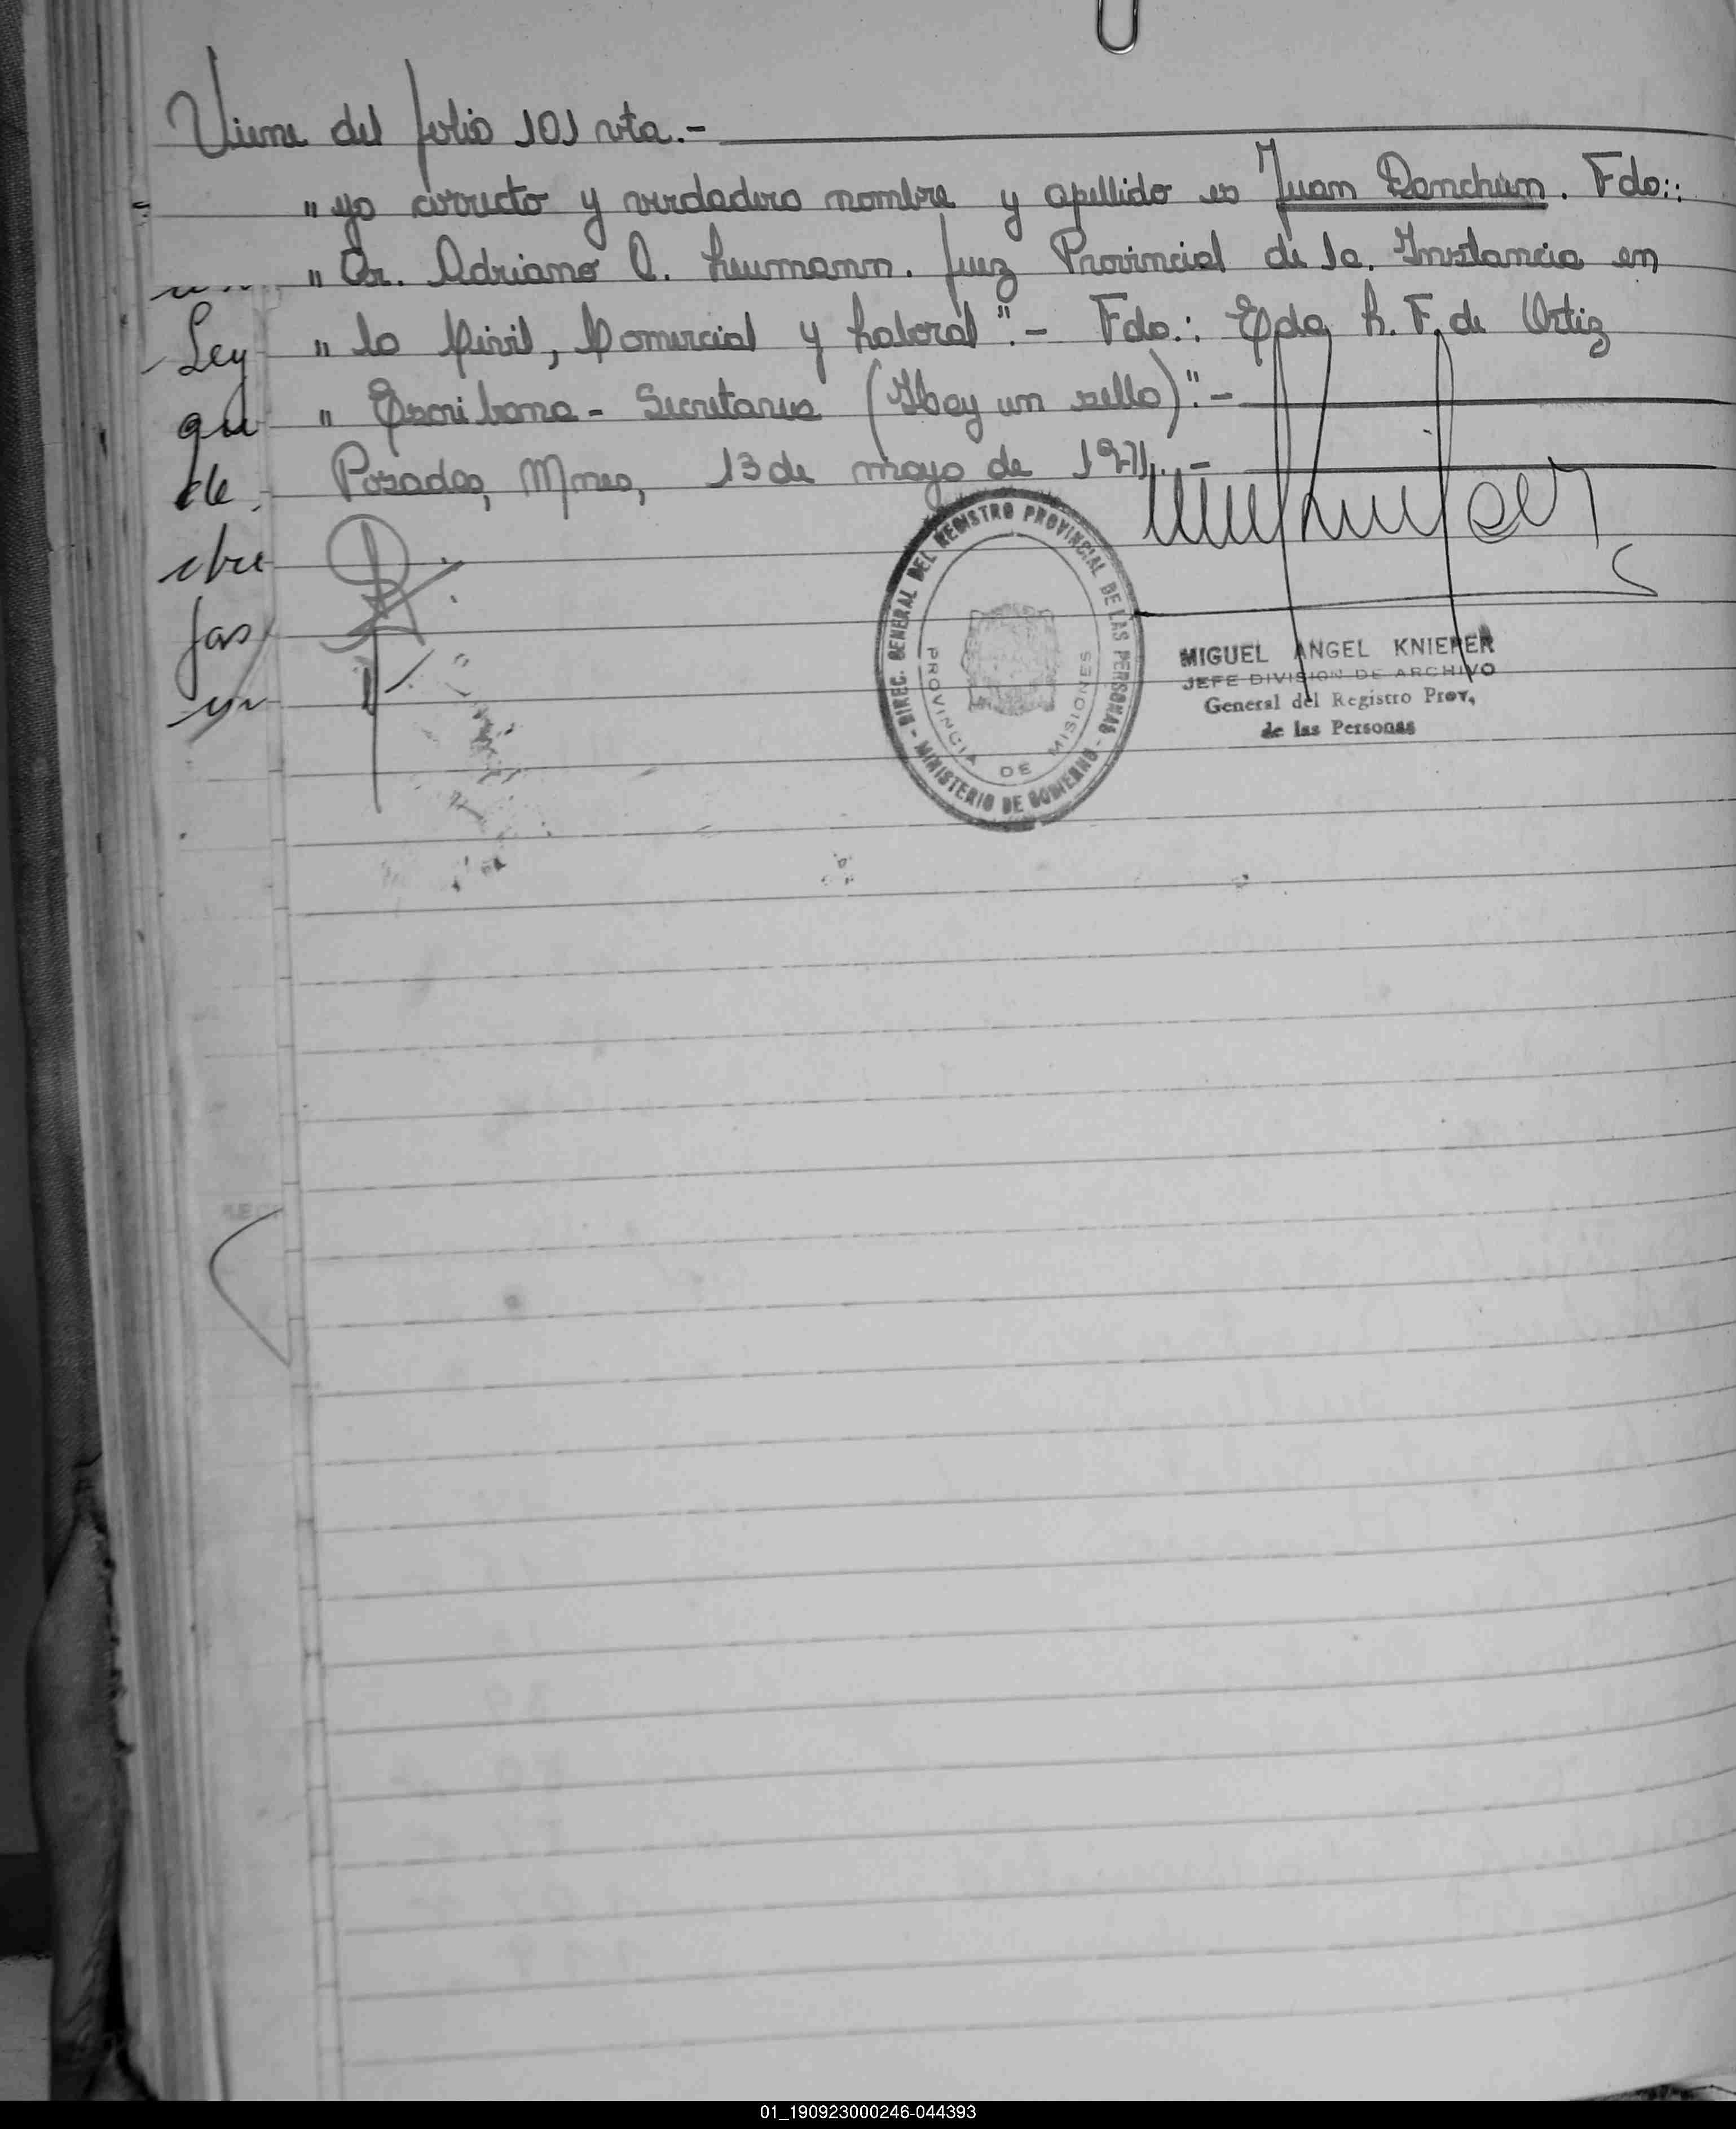 Viene del folio 101 vta.-
" yo correcto y verdadero nombre y apellido es Juan Demchum. Fdo.:
" Dr. Adriano A. Leumann. Juez Provincial de 1a. Instancia en
" lo Civil, Comercial y Laboral".- Fdo.: Epda L. F. de Ortiz
" Escribana - Secretaria (Hay un sello)".-
Posadas, Mnes, 13 de mayo de 1971.-
Ley
que
de
fas
un
DIREC. GENERAL DEL REGISTRO PROVINCIAL DE LAS PERSONAS - MINISTERIO DE GOBIERNO -
PROVINCIA DE MISIONES
MIGUEL ANGEL KNIEPER
JEFE DIVISION DE ARCHIVO
General del Registro Prov,
de las Personas
01_190923000246-044393